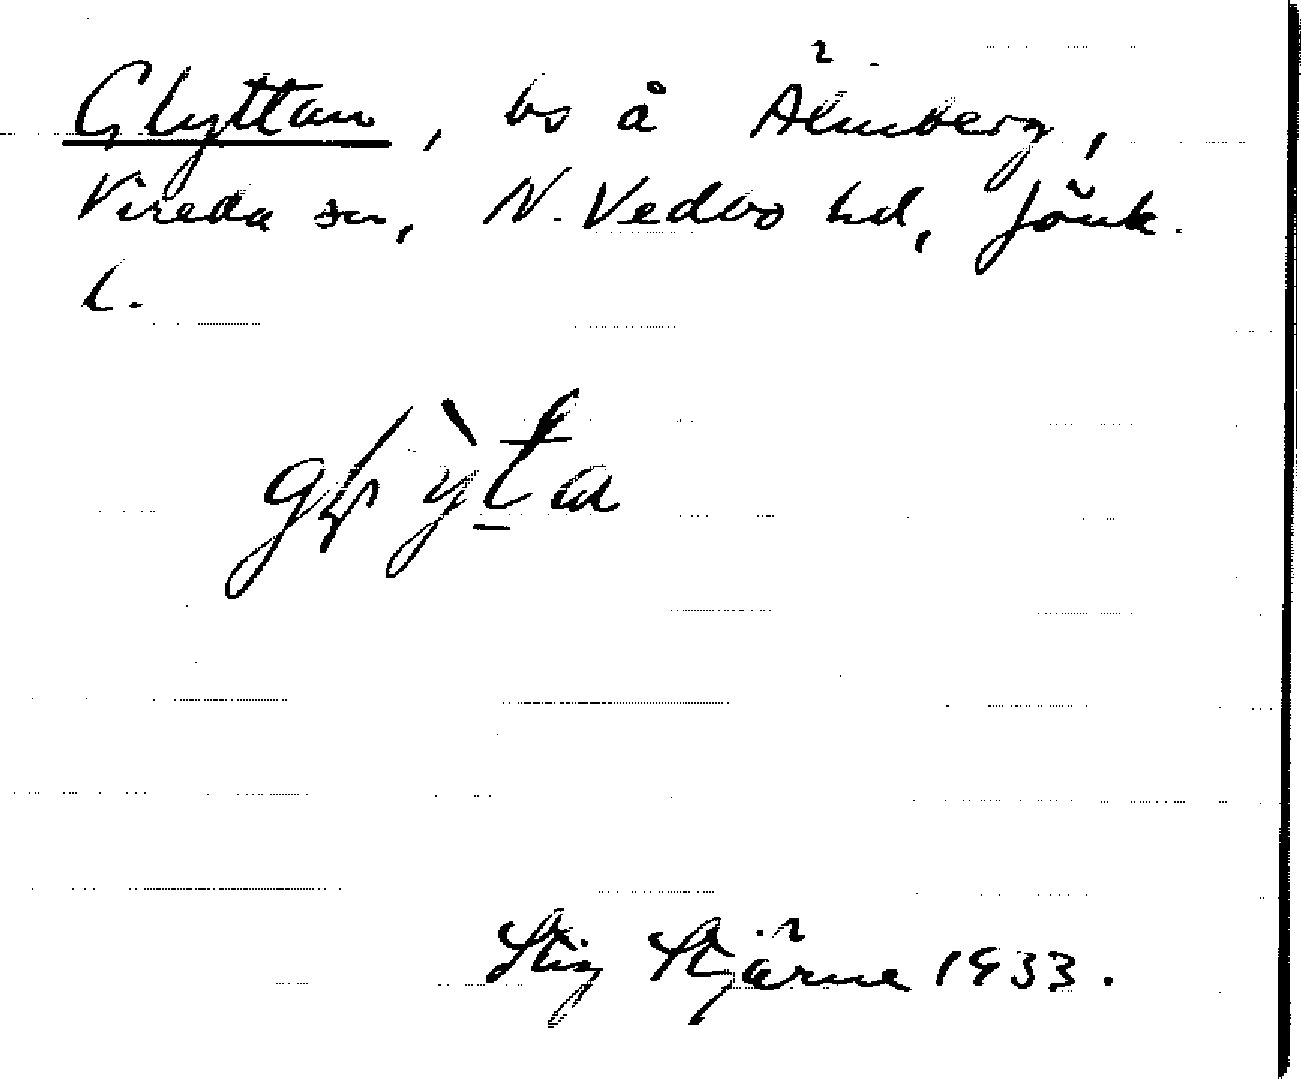 Glyttan, bs å Älmberg,
Vireda sn, N. Vedbo hd, Jönk.
l.
Stig Stjärne 1933.